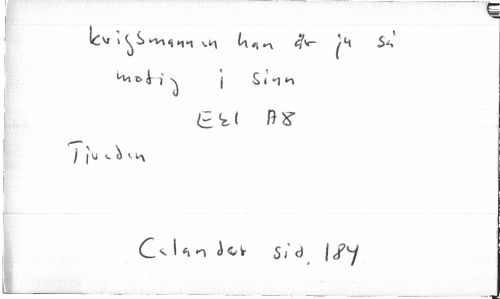 krigsmannen han är ju så
modig i sinn
Ek1 A8
Tiveden
Calander sid. 184